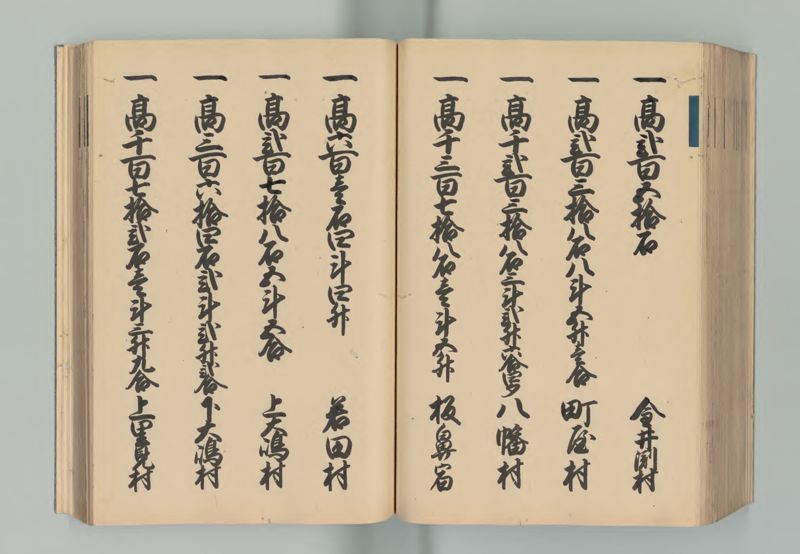 一 高弐百五拾石 金井渕村
一 高弐百三拾八石八斗五升三合 町屋村
一 高千弐百三拾八石三斗弐升六合四夕 八幡村
一 高千三百七拾八石壱斗五升 板鼻宿
一 高六百壱石四斗四升 若田村
一 高弐百七拾八石五斗五合 上大嶋村
一 高三百六拾四石弐斗弐升弐合 下大嶋村
一 高千百七拾弐石壱斗三升九合 上里見村